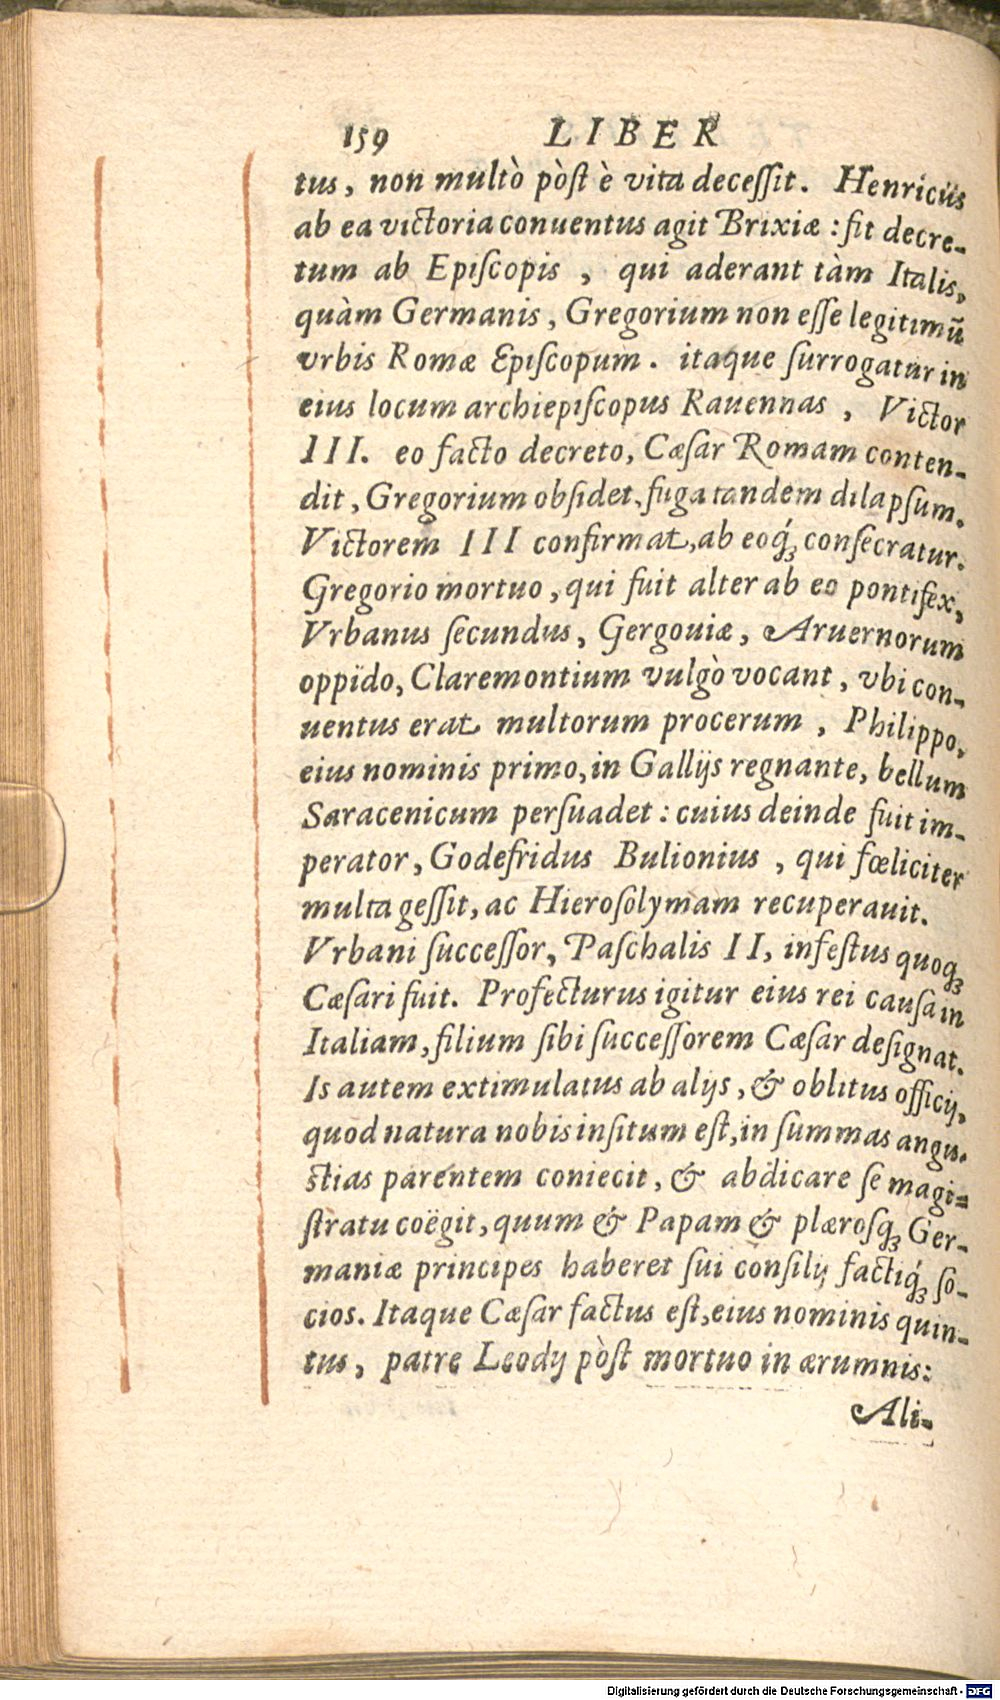 159 LIBER
tus, non multò pòſt è vita deceſſit. Henricus
ab ea victoria conuentus agit Brixiæ : fit decre-
tum ab Epiſcopis, qui aderant tàm Italis,
quàm Germanis, Gregorium non eſſe legitimū
vrbis Romæ Epiſcopum. itaque ſurrogatur in
eius locum archiepiſcopus Rauennas, Victor
III. eo facto decreto, Cæſar Romam conten-
dit, Gregorium obſidet, fuga tandem dilapſum.
Victorem III confirmat, ab eoq́ꝫ conſecratur.
Gregorio mortuo, qui fuit alter ab eo pontifex,
Vrbanus ſecundus, Gergouiæ, Aruernorum
oppido, Claremontium vulgò vocant, vbi con-
uentus erat multorum procerum, Philippo,
eius nominis primo, in Gallijs regnante, bellum
Saracenicum perſuadet : cuius deinde fuit im-
perator, Godefridus Bulionius, qui fœliciter
multa geſſit, ac Hieroſolymam recuperauit.
Vrbani ſucceſſor, Paſchalis II, infeſtus quoqꝫ
Cæſari fuit. Profecturus igitur eius rei cauſa in
Italiam, filium ſibi ſucceſſorem Cæſar deſignat.
Is autem extimulatus ab alijs, & oblitus officij,
quod natura nobis inſitum eſt, in ſummas angu-
ſtias parentem coniecit, & abdicare ſe magi-
ſtratu coëgit, quum & Papam & plæroſqꝫ Ger-
maniæ principes haberet ſui conſilij factiq́ꝫ ſo-
cios. Itaque Cæſar factus eſt, eius nominis quin-
tus, patre Leodij pòſt mortuo in ærumnis:
Ali-
Digitalisierung gefördert durch die Deutsche Forschungsgemeinschaft - DFG